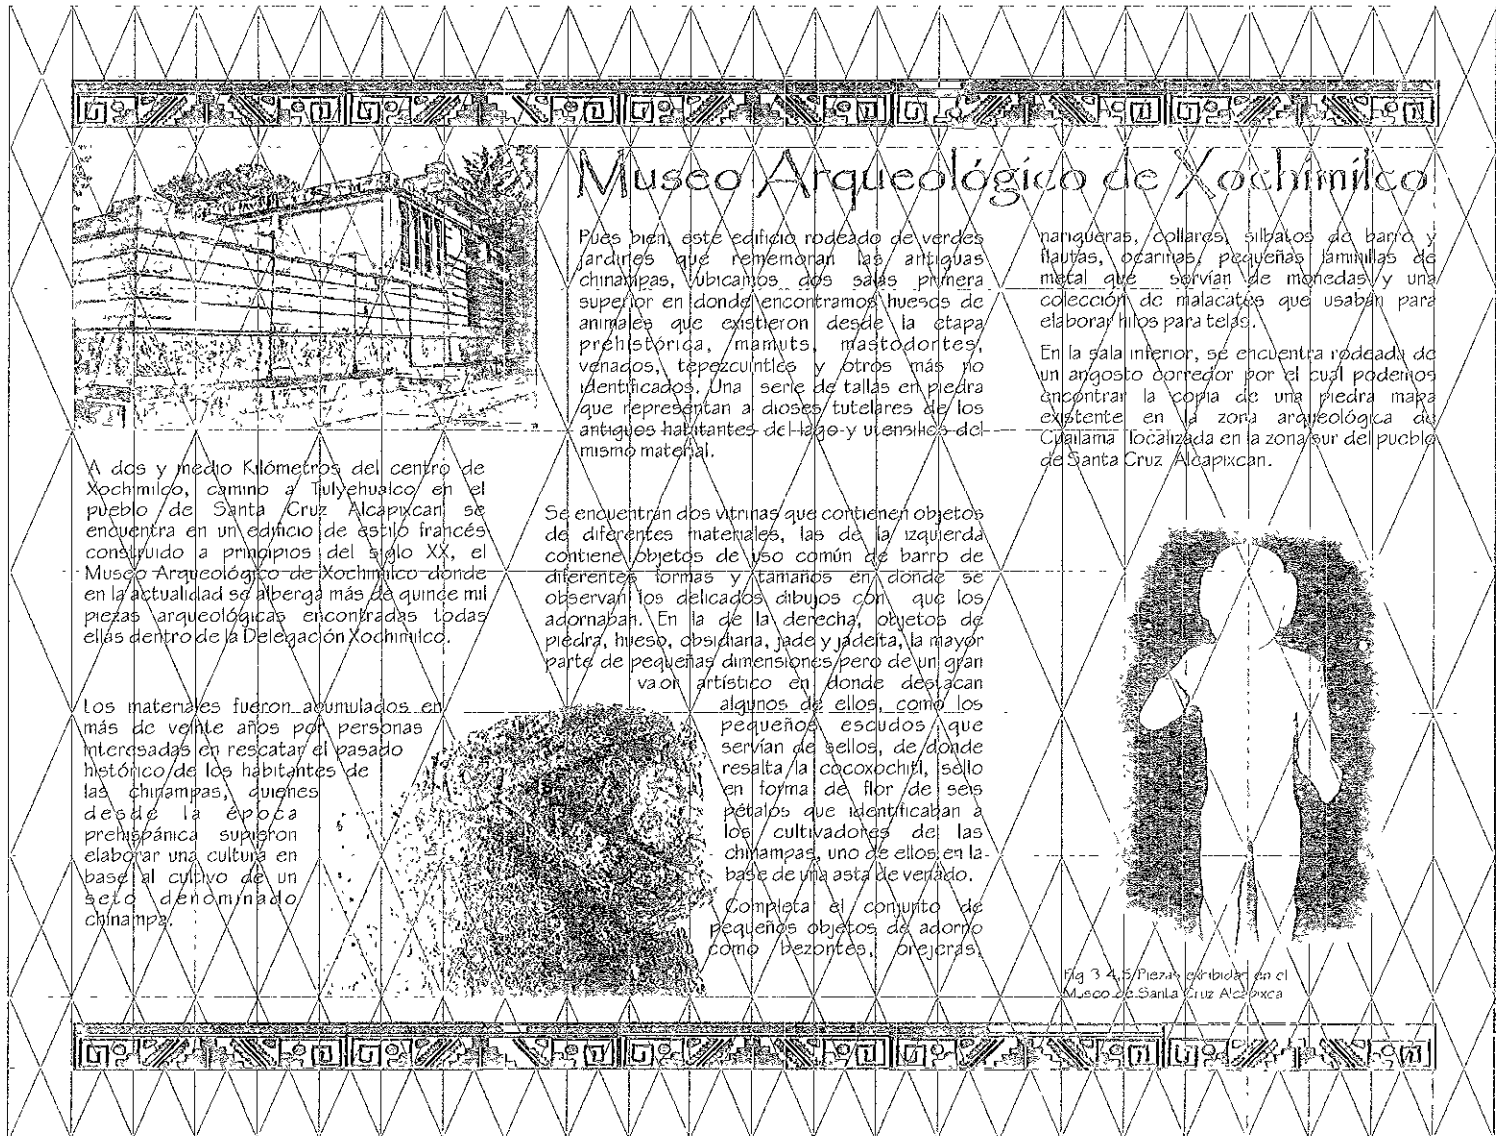 Museo Arqueológico de Xochimilco
A dos y medio Kilómetros del centro de
Xochimilco, camino a Tulyehualco en el
pueblo de Santa Cruz Alcapixcan se
encuentra en un edificio de estilo francés
construido a principios del siglo XX, el
Museo Arqueológico de Xochimilco donde
en la actualidad se alberga más de quince mil
piezas arqueológicas encontradas todas
ellas dentro de la Delegación Xochimilco.
Los materiales fueron acumulados en
más de veinte años por personas
interesadas en rescatar el pasado
histórico de los habitantes de
las chinampas, quienes
desde la época
prehispánica supieron
elaborar una cultura en
base al cultivo de un
seto denominado
chinampa.
Pues bien, este edificio rodeado de verdes
jardines que rememoran las antiguas
chinampas, ubicamos dos salas primera
superior en donde encontramos huesos de
animales que existieron desde la etapa
prehistórica, mamuts, mastodontes,
venados, tepezcuintles y otros más no
identificados. Una serie de tallas en piedra
que representan a dioses tutelares de los
antiguos habitantes del lago y utensilios del
mismo material.
Se encuentran dos vitrinas que contienen objetos
de diferentes materiales, las de la izquierda
contiene objetos de uso común de barro de
diferentes formas y tamaños en donde se
observan los delicados dibujos con que los
adornaban. En la de la derecha, objetos de
piedra, hueso, obsidiana, jade y jadeita, la mayor
parte de pequeñas dimensiones pero de un gran
valor artístico en donde destacan
algunos de ellos, como los
pequeños escudos que
servían de sellos, de donde
resalta la cocoxochitl, sello
en forma de flor de seis
pétalos que identificaban a
los cultivadores de las
chinampas, uno de ellos en la
base de una asta de venado.
Completa el conjunto de
pequeños objetos de adorno
como bezontes, orejeras,
narigueras, collares, silbatos de barro y
flautas, ocarinas, pequeñas laminillas de
metal que servían de monedas y una
colección de malacates que usaban para
elaborar hilos para telas.
En la sala inferior, se encuentra rodeada de
un angosto corredor por el cual podemos
encontrar la copia de una piedra mapa
existente en la zona arqueológica de
Cuailama localizada en la zona sur del pueblo
de Santa Cruz Alcapixcan.
Fig 3.4.5 Piezas exhibidas en el
Museo de Santa Cruz Alcapixca